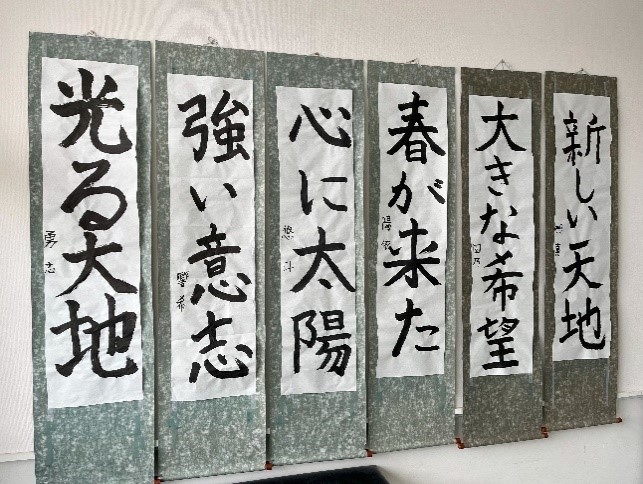 新しい天地
大きな希望
春が来た
陽依
心に太陽
悠斗
強い意志
響希
光る大地
勇志